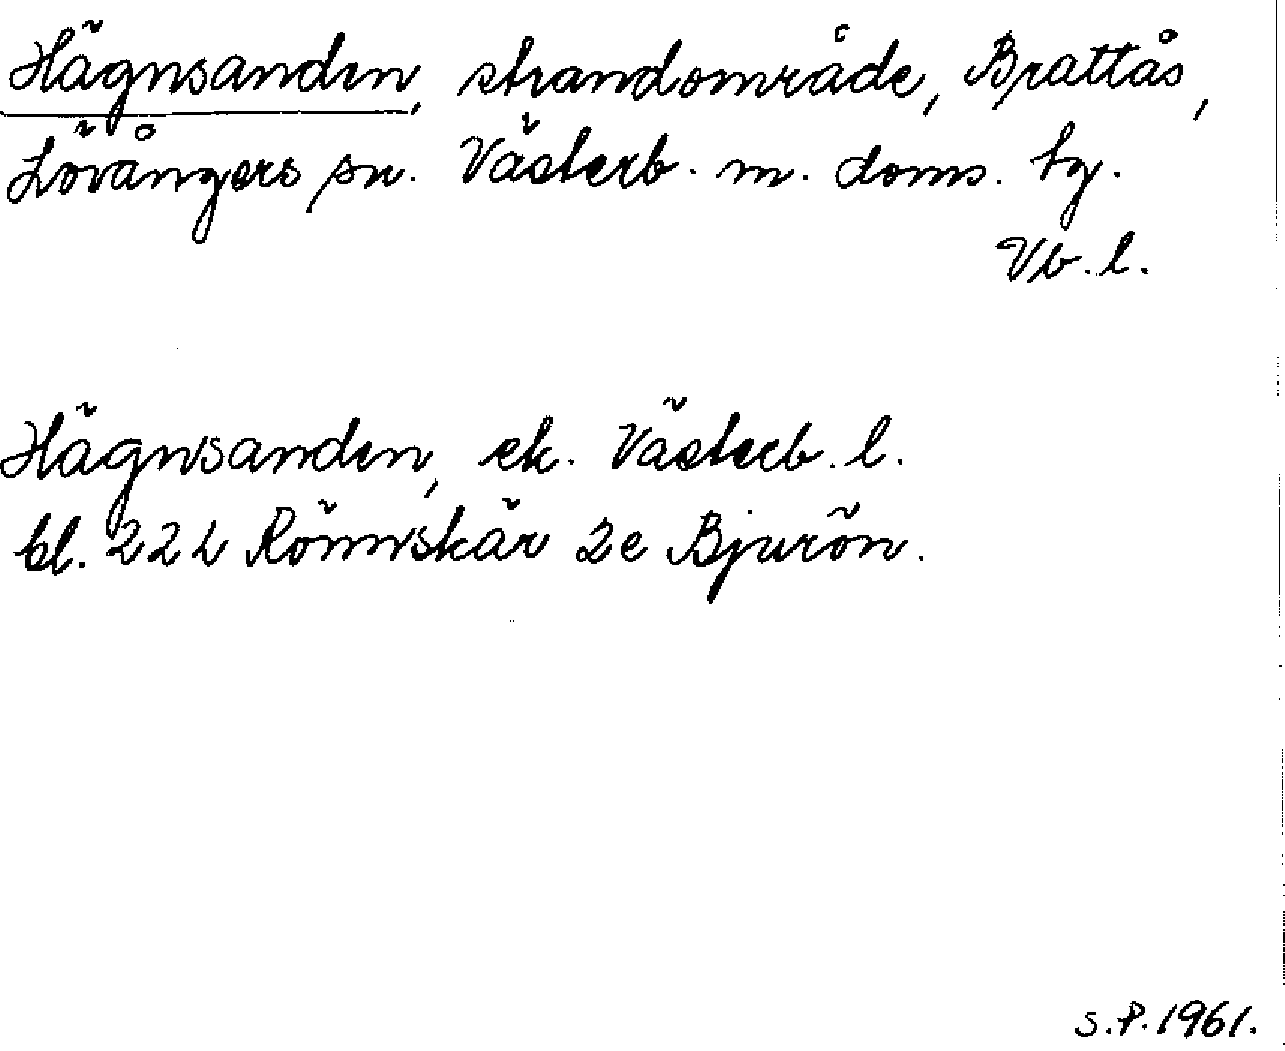 Hägnsanden, strandområde, Brattås,
Lövångers sn. Västerb. m. doms. tg.
Vb. l.
Hägnsanden, ek. Västerb. l.
bl. 22L Rönnskär 2e Bjurön.
S.P. 1961.